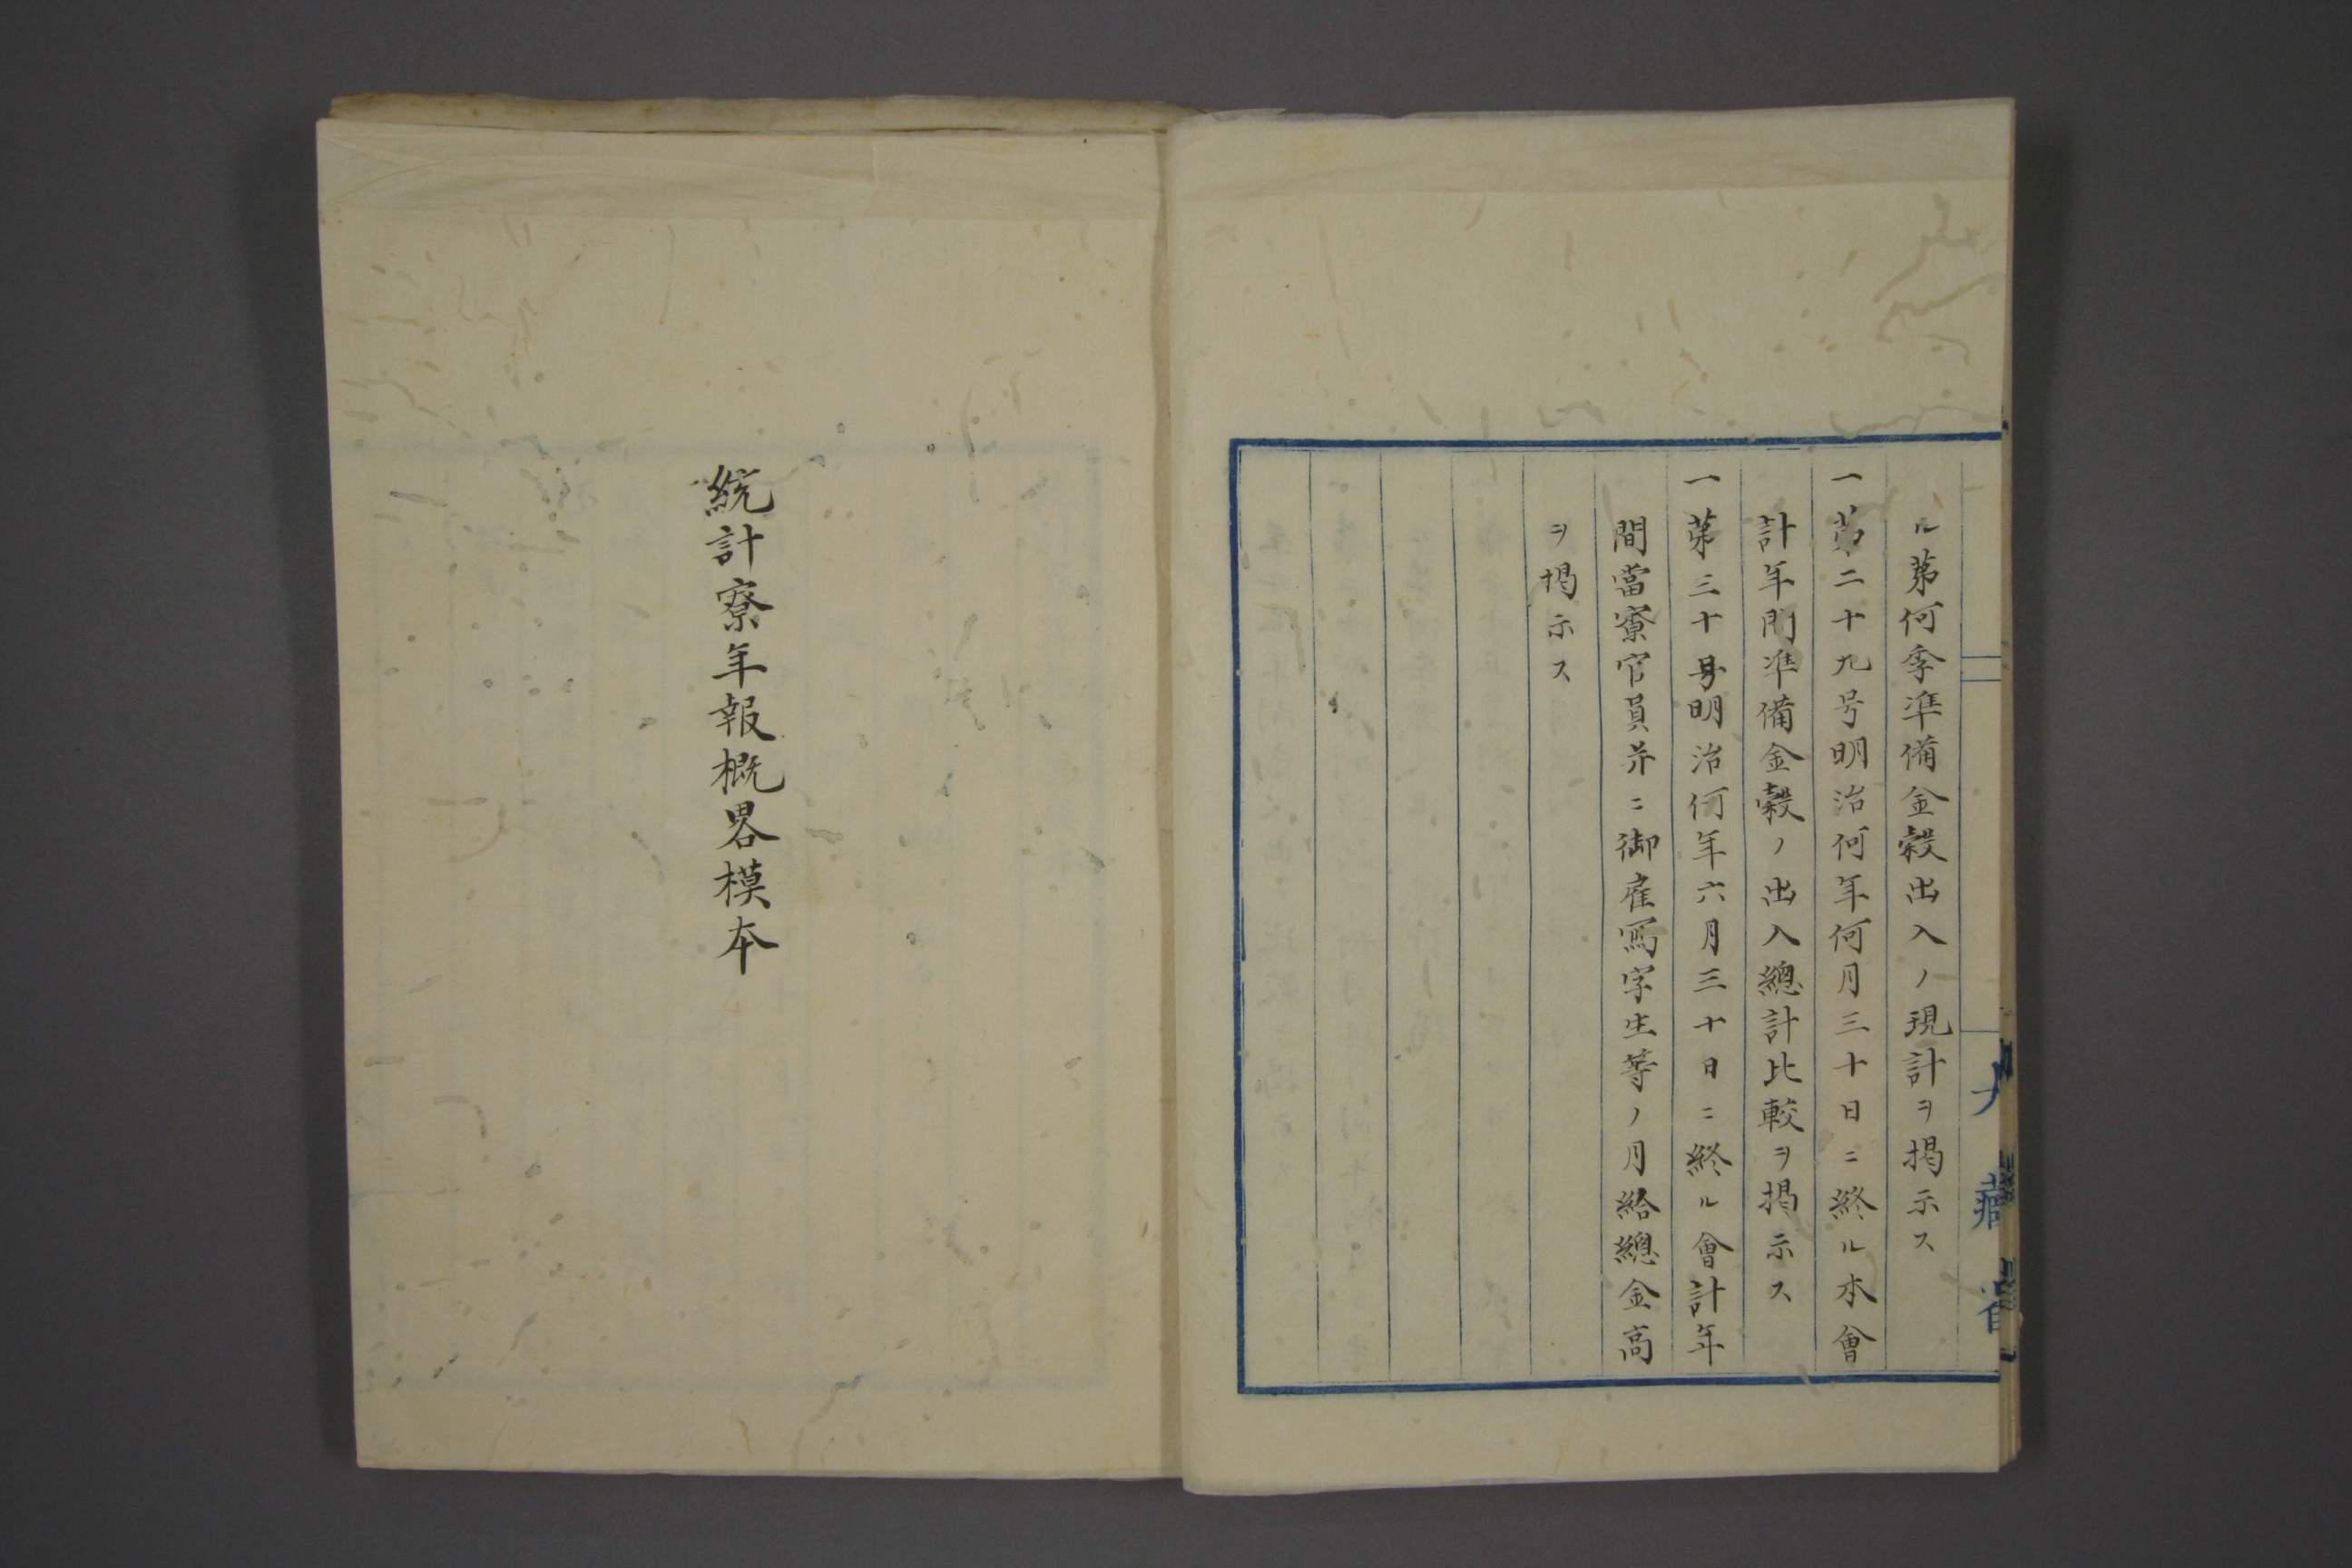 ル第何季準備金穀出入ノ現計ヲ掲示ス
一第二十九号明治何年何月三十日ニ終ル本會
計年間準備金穀ノ出入總計比較ヲ掲示ス
一第三十号明治何年六月三十日ニ終ル會計年
間當寮官員并ニ御雇寫字生等ノ月給總金高
ヲ掲示ス
大藏省
統計寮年報概畧模本